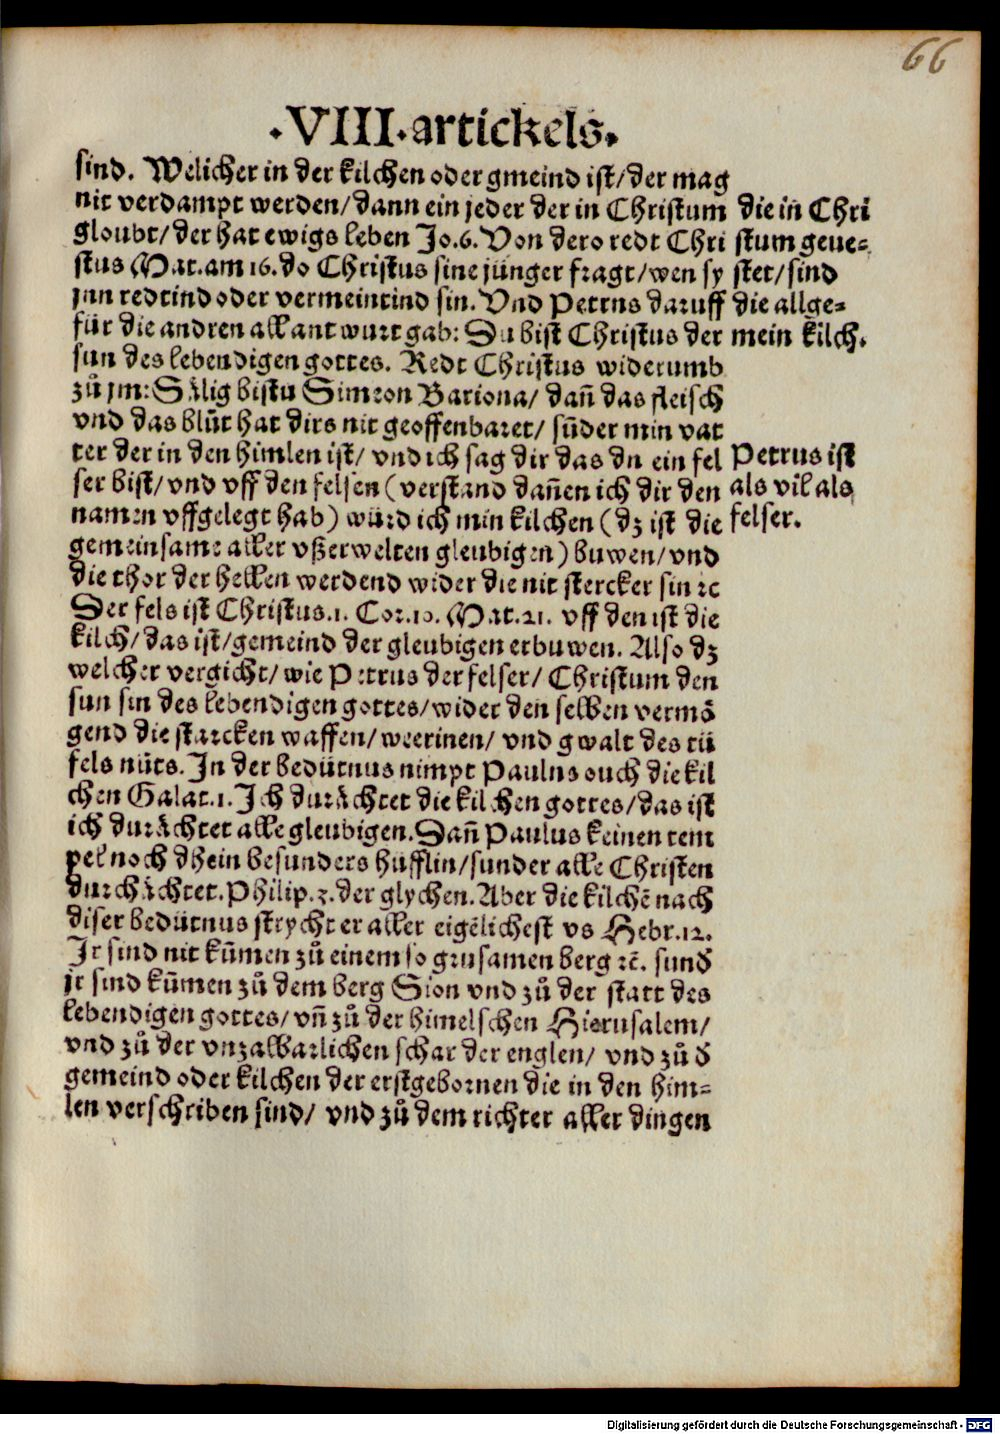 66
·VIII·artickels·
sind. Welicher in der kilchen oder gmeind ist/der mag
nit verdampt werden/dann ein jeder der in Christum
gloubt/der hat ewigs leben Jo.6. Von dero redt Chri
stus Mat.am 16. do Christus sine jünger fragt/wen sy
jnn redtind oder vermeintind sin. Vnd Petrus daruff
für die andren all antwurt gab: Du bist Christus der
sun des lebendigen gottes. Redt Christus widerumb
zů jm: Sälig bistu Simeon Bariona/ dañ das fleisch
vnd das blůt hat dirs nit geoffenbaret/ sũder min vat
ter der in den himlen ist/ vnd ich sag dir das du ein fel
ser bist/vnd vff den felsen (verstand dañen ich dir den
namen vffgelegt hab) würd ich min kilchen (dz ist die
gemeinsame aller vßerwelten gleubigen) buwen/vnd
die thor der hellen werdend wider die nit stercker sin ꝛc
Der fels ist Christus.1. Cor.10. Mat.21. vff den ist die
kilch/das ist/gemeind der gleubigen erbuwen. Also dz
welcher vergicht/wie Petrus der felser/ Christum den
sun sin des lebendigen gottes/wider den selben vermö
gend die starcken waffen/weerinen/ vnd gwalt des tü
fels nüts. In der bedütnus nimpt Paulus ouch die kil
chen Galat.1. Ich durächtet die kilchen gottes/das ist
ich durächtet alle gleubigen. Dañ Paulus keinen tem
pel noch dhein besunders hüfflin/sunder alle Christen
durchächtet. Philip.3. der glychen. Aber die kilchẽ nach
diser bedütnus strycht er aller eigẽlichest vs Hebr.12.
Ir sind nit kũmen zů einem so grusamen berg ꝛc̃. sund̕
jr sind kũmen zů dem berg Sion vnd zů der statt des
lebendigen gottes/ vñ zů der himelschen Hierusalem/
vnd zů der vnzalbarlichen schar der englen/ vnd zů d̕
gemeind oder kilchen der erstgebornen die in den him-
len verschriben sind/ vnd zů dem richter aller dingen
die in Chri
stum geue-
stet/sind
die allge-
mein kilch.
Petrus ist
als vil als
felser.
Digitalisierung gefördert durch die Deutsche Forschungsgemeinschaft - DFG